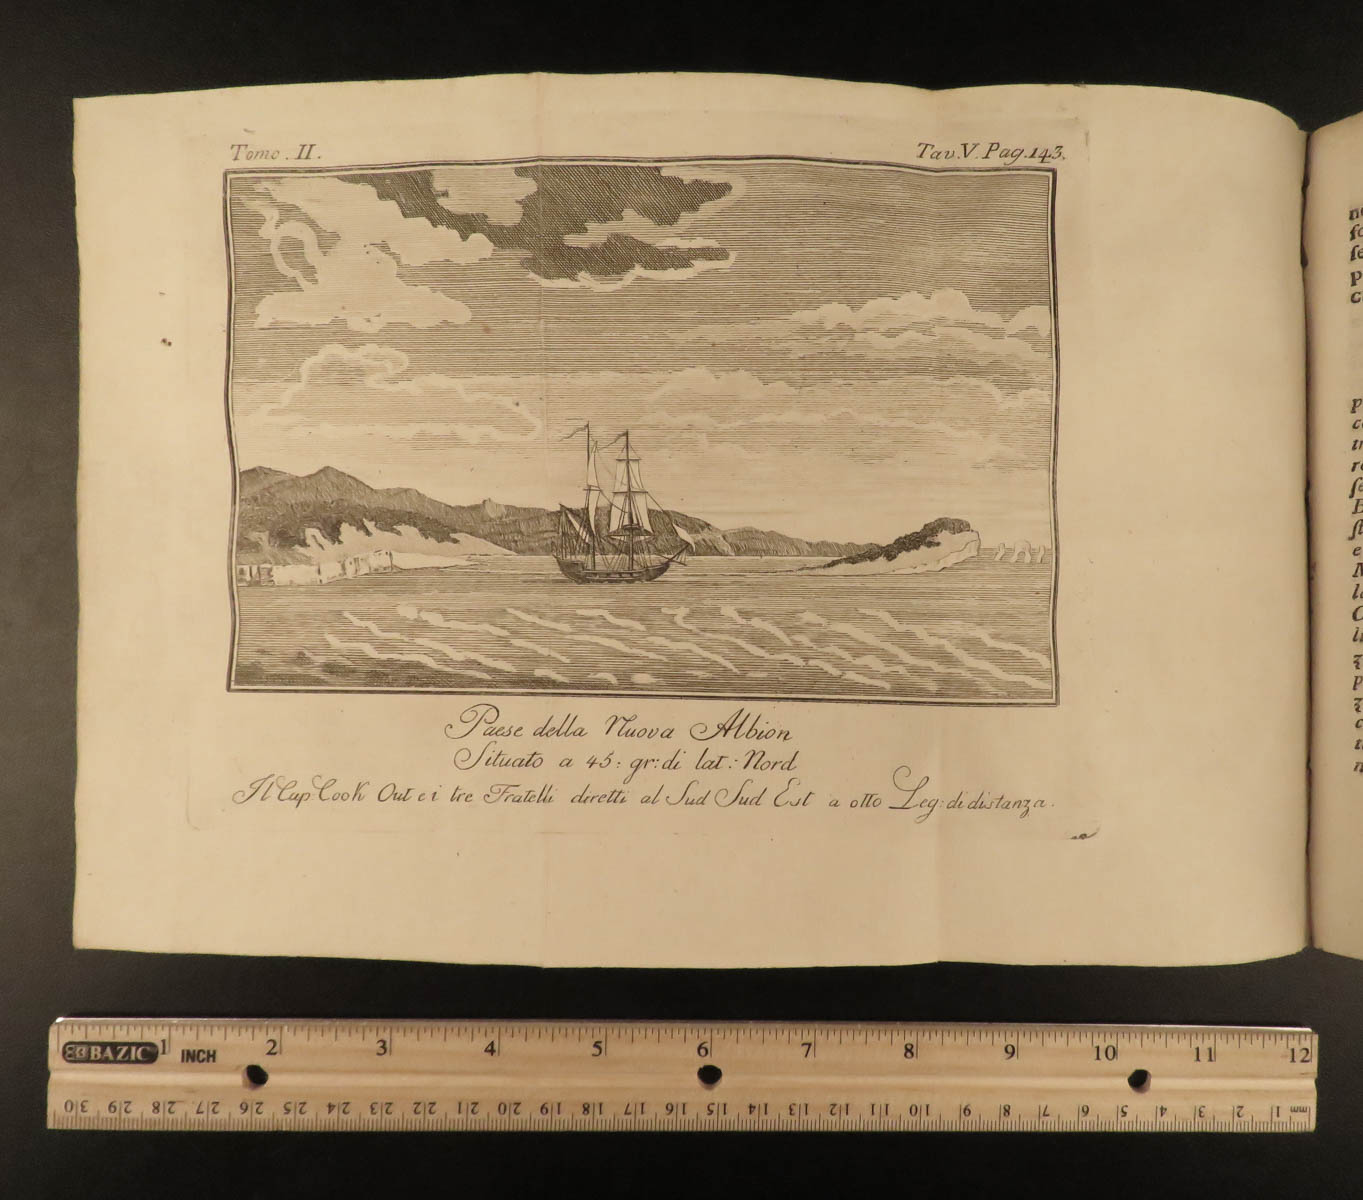 Tomo. II.
Tav. V. Pag. 143.
Paese della Nuova Albion
Situato a 45: gr: di lat: Nord
Il Cap Cook Out e i tre Fratelli diretti al Sud Sud Est a otto Leg: di distanza.
BAZIC INCH
1 2 3 4 5 6 7 8 9 10 11 12
30 29 28 27 26 25 24 23 22 21 20 19 18 17 16 15 14 13 12 11 10 9 8 7 6 5 4 3 2 1 mm